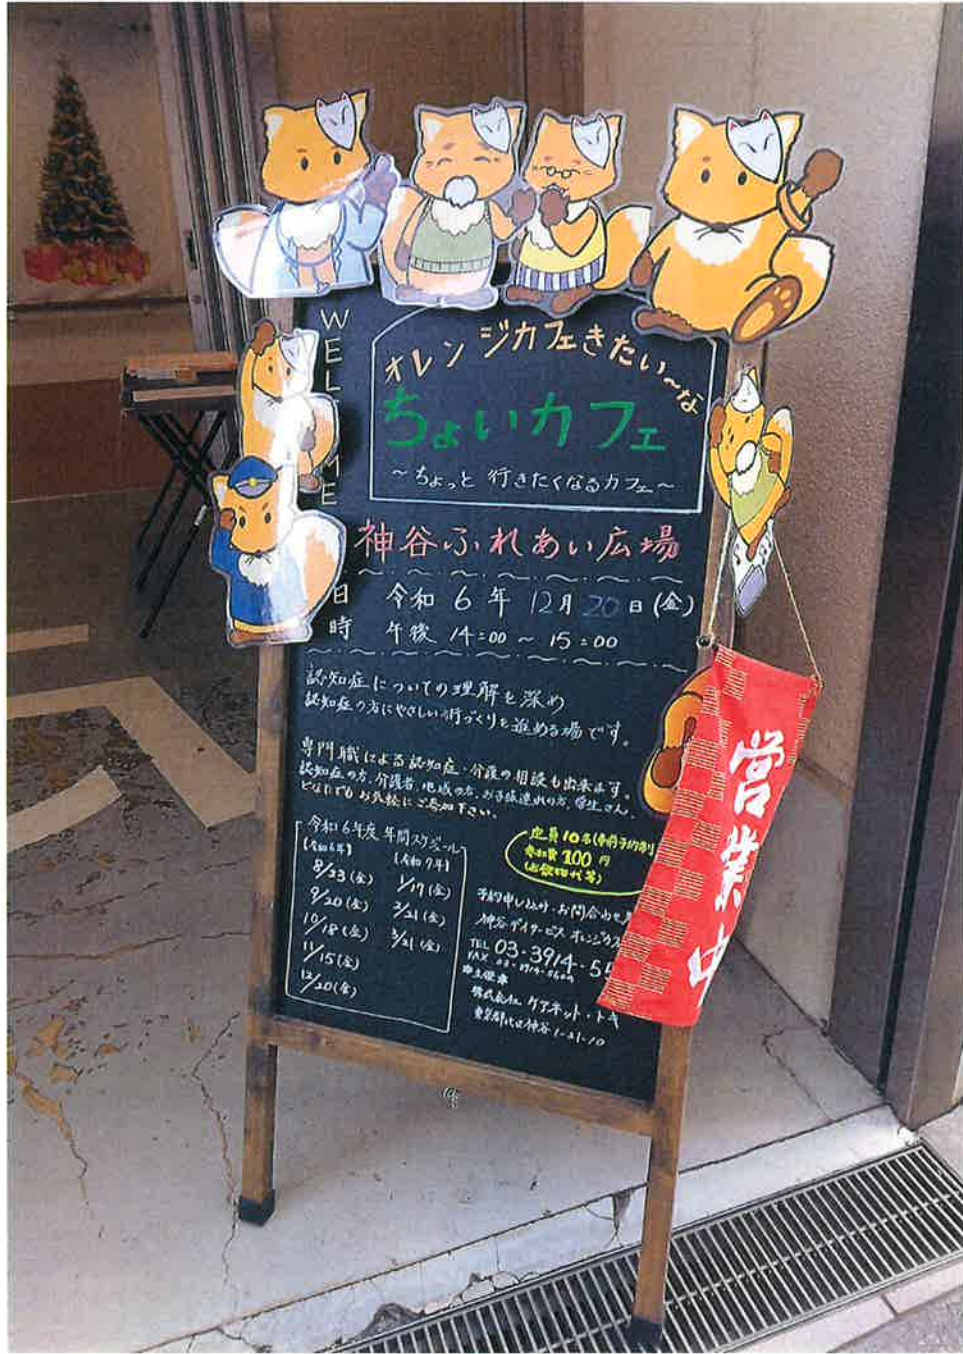 WEL ME
オレンジカフェきたい〜な
ちょいカフェ
〜ちょっと 行きたくなるカフェ〜
神谷ふれあい広場
日時
令和 6 年 12月 20日(金)
午後 14:00 〜 15:00
認知症についての理解を深め
認知症の方にやさしい街づくりを進める場です。
専門職による認知症・介護の相談も出来ます。
認知症の方、介護者、地域の方、お子様連れの方、学生さん、
どなたでも お気軽に ご参加下さい。
令和6年度 年間スケジュール
【令和6年】
8/23(金)
9/20(金)
10/18(金)
11/15(金)
12/20(金)
【令和7年】
1/17(金)
2/21(金)
3/21(金)
定員10名(事前予約制
参加費 100 円
(お飲物代等)
予約申し込み・お問合わせ
神谷デイサービス オレンジカフェ
TEL 03-3914-55
FAX 03-3914-
主催者
株式会社 ケアネット・トキ
東京都北区神谷 1-21-10
営業中